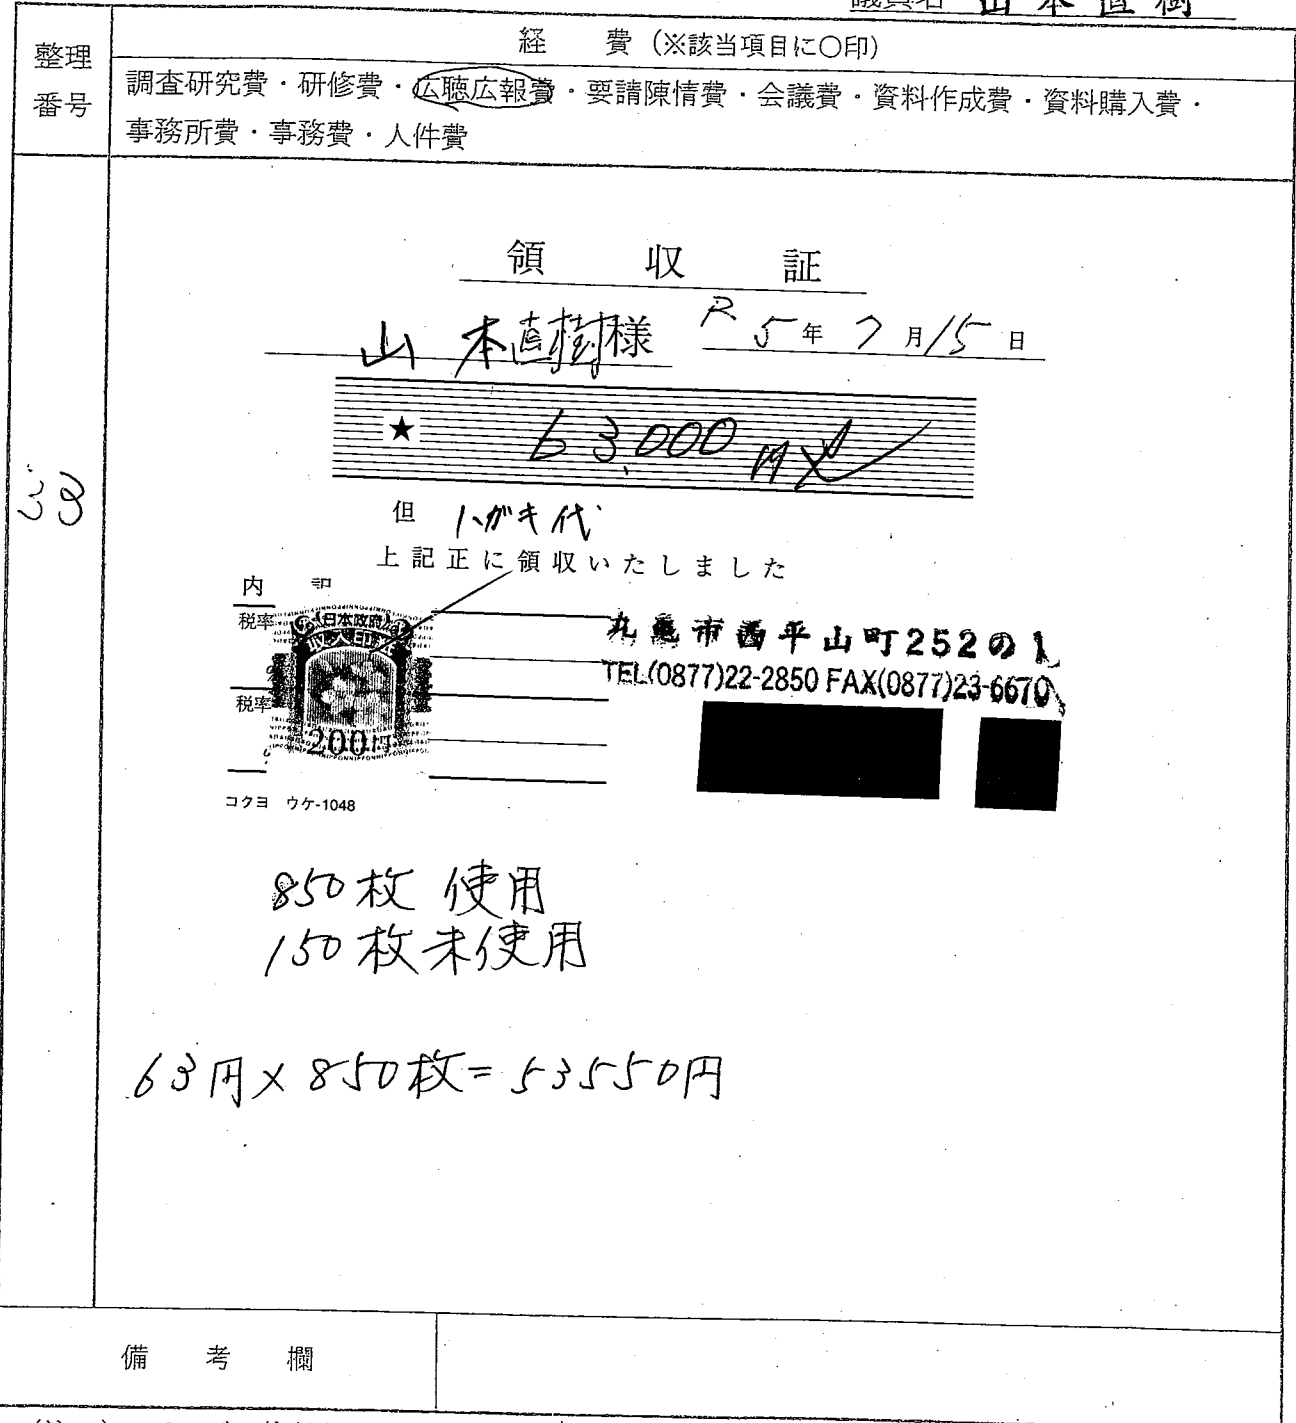 議員名 山本直樹
整理番号
経 費（※該当項目に〇印）
調査研究費・研修費・広聴広報費・要請陳情費・会議費・資料作成費・資料購入費・
事務所費・事務費・人件費
領 収 証
山本直樹様 R5年7月15日
★ 63,000円
但 ハガキ代
上記正に領収いたしました
内
税率
税率
日本政府
200円
丸亀市西平山町252の1
TEL(0877)22-2850 FAX(0877)23-6670
コクヨ ウケ-1048
850枚 使用
150枚未使用
63円×850枚=53550円
備 考 欄